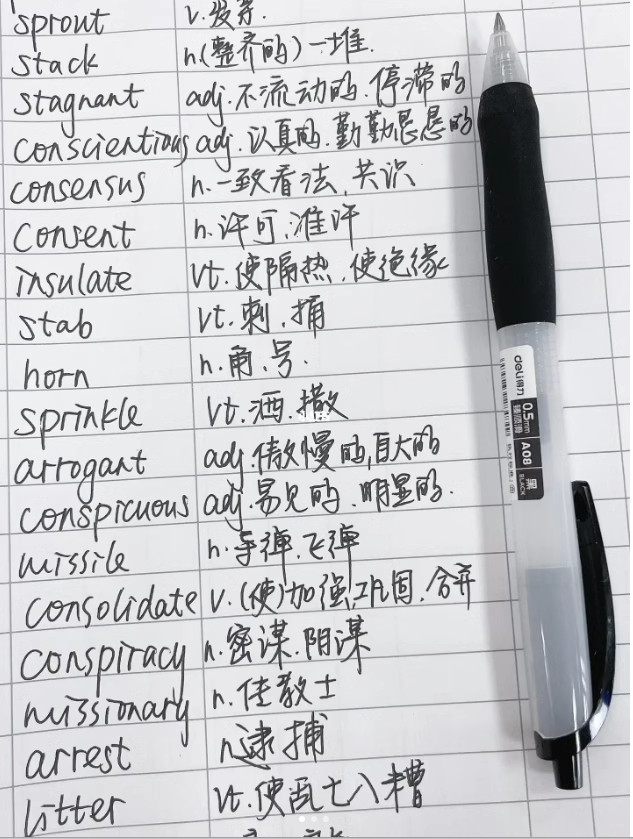 sprout v.发芽.
stack n.(整齐的)一堆.
stagnant adj.不流动的.停滞的
conscientious adj.认真的.勤勤恳恳的
consensus n.一致看法.共识
consent n.许可.准许
insulate vt.使隔热.使绝缘
stab vt.刺.捅
horn n.角.号.
sprinkle vt.洒.撒
arrogant adj.傲慢的,自大的
conspicuous adj.易见的.明显的.
missile n.导弹.飞弹
consolidate v.(使)加强,巩固.合并
conspiracy n.密谋.阴谋
missionary n.传教士
arrest n.逮捕
litter vt.使乱七八糟
deli 得力
0.5mm A08 黑
BLACK